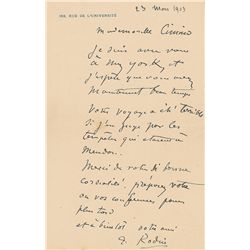 182, RUE DE L'UNIVERSITÉ
23 Mars 1903
Mademoiselle
Je suis avec vous
à New york et
j'espère que vous avez
maintenant beau temps
Votre voyage a été terrible
si j'en juge par les
tempêtes qui étaient à
Meudon.
Merci de votre si bonne
cordialité. préparez votre
ou vos conférences pour
plus tard
et à bientôt votre ami
A. Rodin